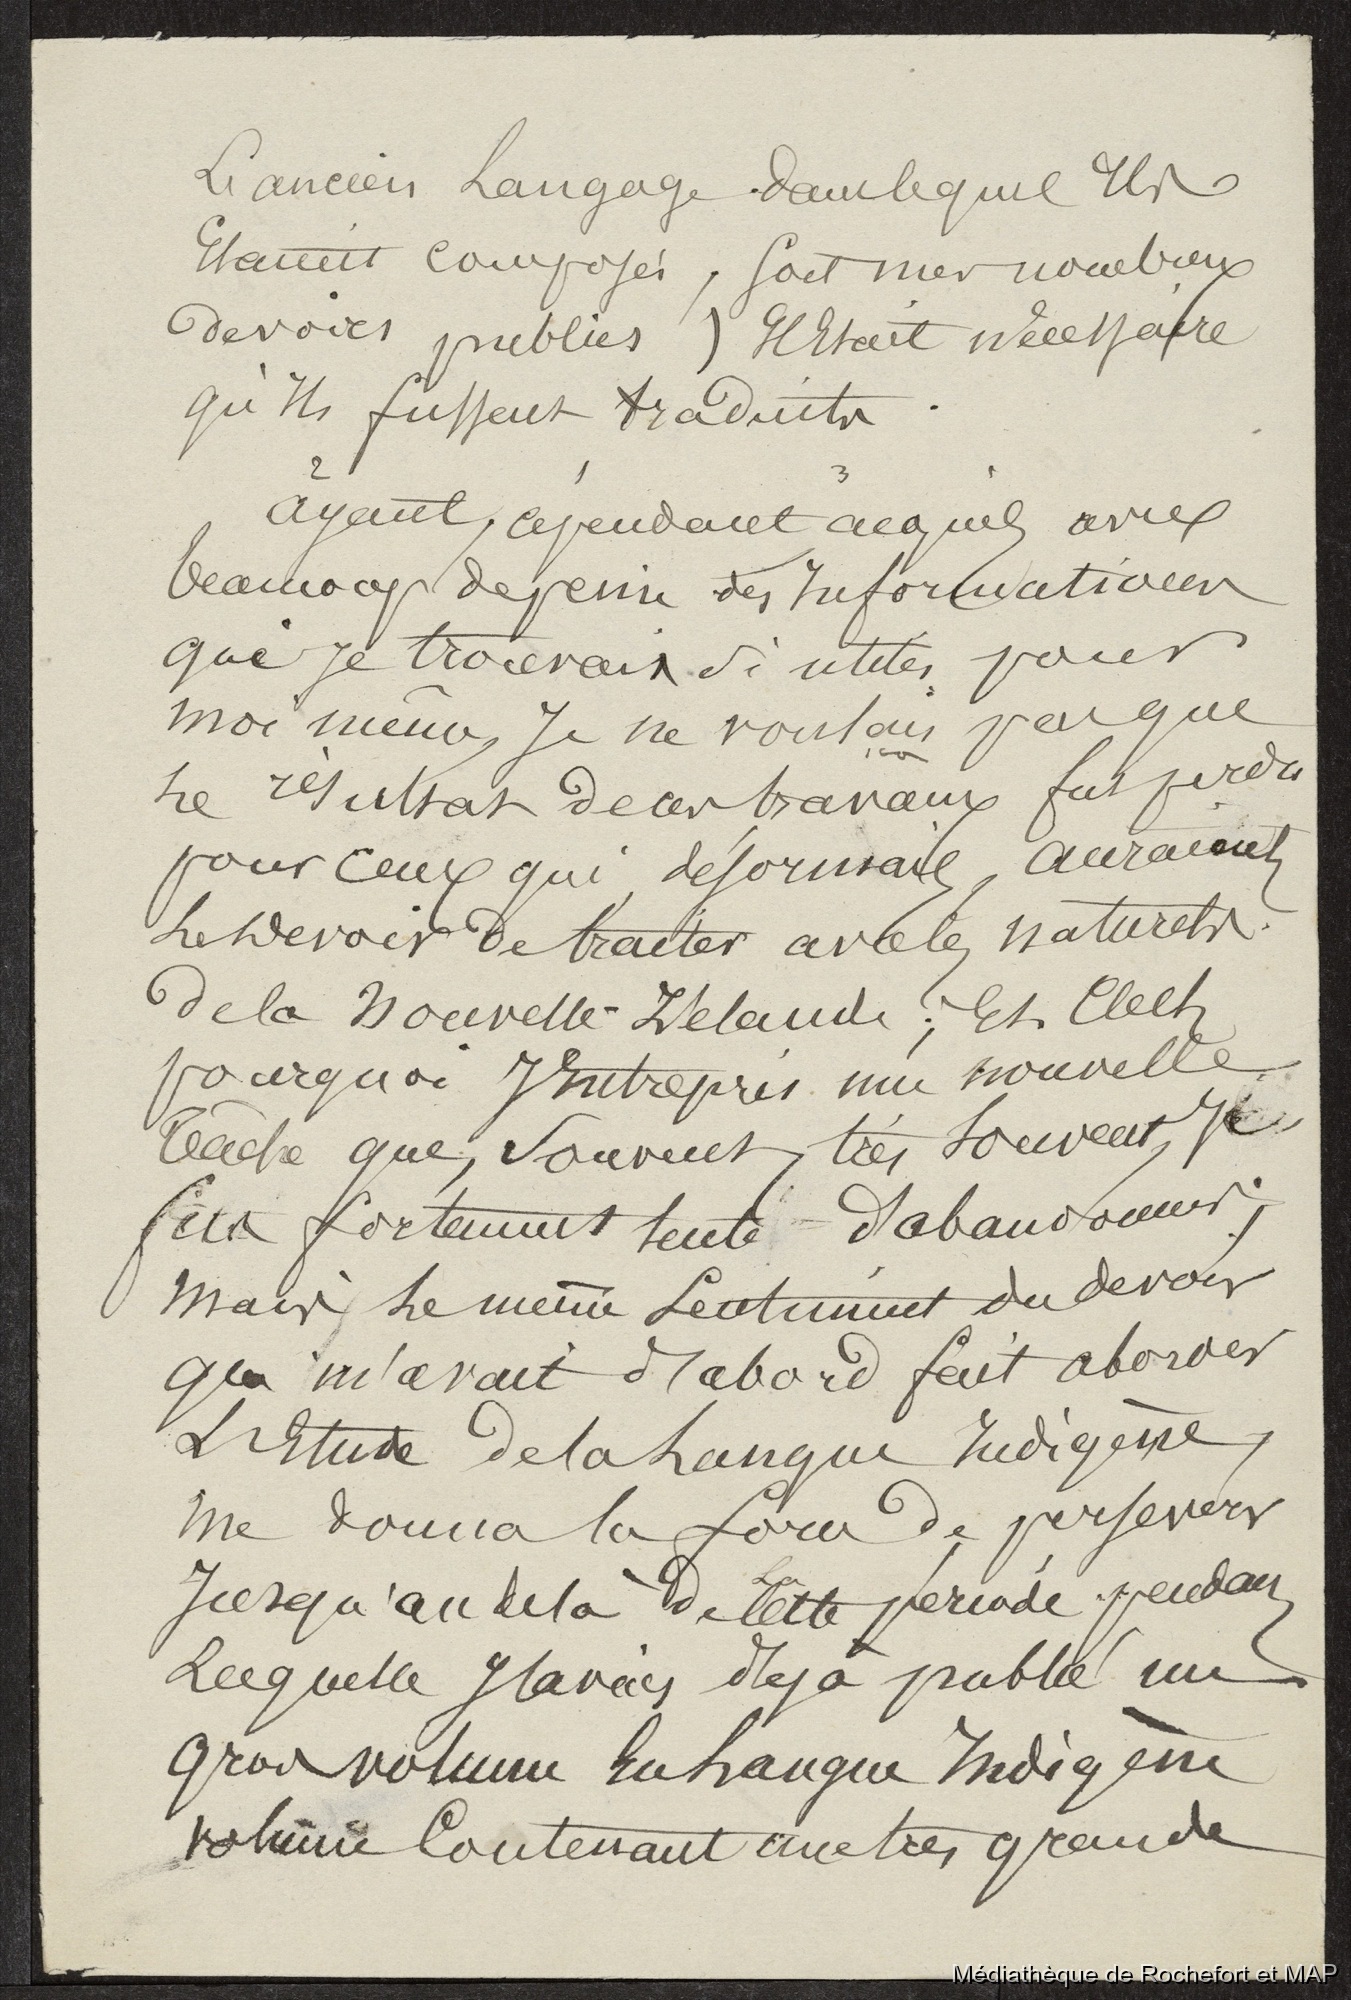 L'ancien Langage dans lequel Ils
Etaient composés, soit mes nombreux
devoirs publics) Il Etait nécessaire
qu'Ils fussent traduits.
2 1 3
ayant, cependant acquis avec
beaucoup de peine des Informations
que je trouvais si utiles pour
moi même, Je ne voulais pas que
le résultat de ces travaux fut perdu
pour ceux qui, désormais, auraient
Le devoir de traiter avec les naturels
de la Nouvelle-Zélande; Et C'est
pourquoi J'Entrepris une nouvelle
tâche que, souvent, très souvent, Je
fus fortement tenté d'abandonner;
Mais le même Sentiment du devoir
qui m'avait d'abord fait aborder
L'Etude de la Langue Indigène,
me donna la force de perseverer
Jusqu'au delà de cette période pendant
Laquelle J'avais déjà publié un
gros volume En Langue Indigène
volume Contenant une très grande
Médiathèque de Rochefort et MAP